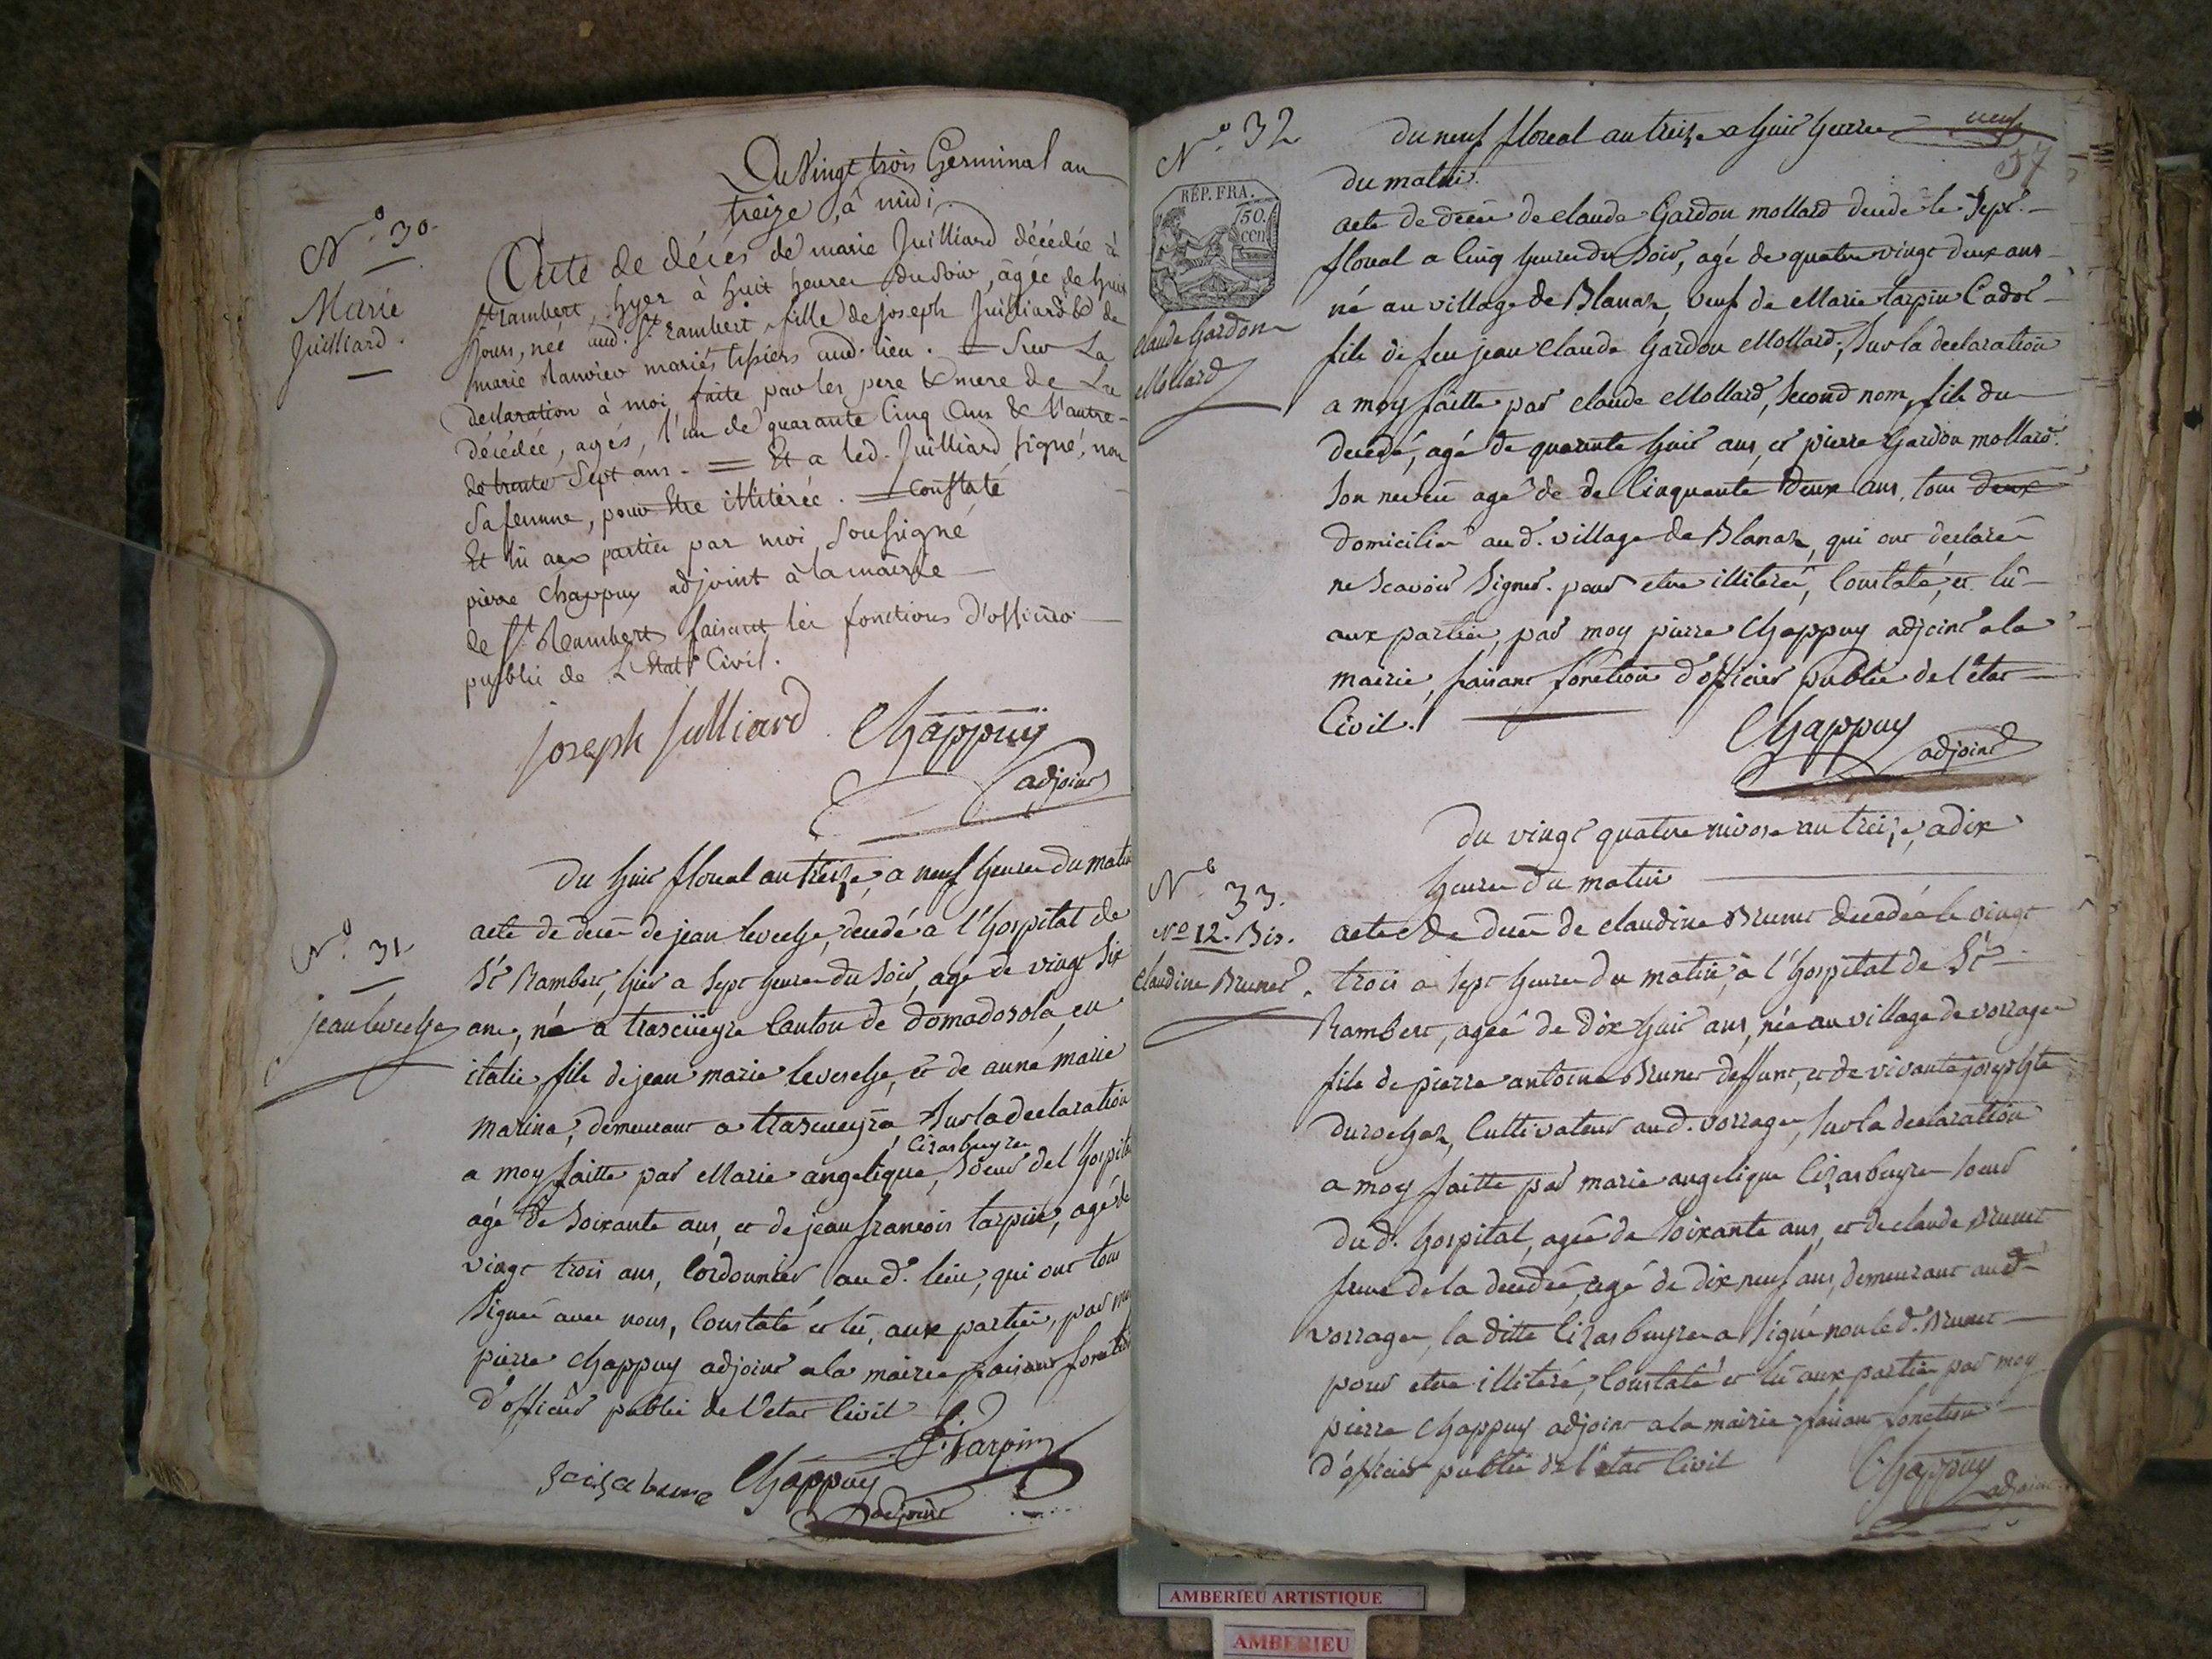 N.o 30.
Marie
Juilliard.
Du Vingt trois Germinal an
treize, à midi
Acte de décés de marie Juilliard décédée à
St. rambert, hyer à huit heures du soir, âgée de huit
jours, née aud. St. rambert, fille de joseph Juilliard & de
marie mariés tissiers aud. lieu. = Sur La
declaration à moi faite par les pere & mere de La
décédée, agés, l'un de quarante Cinq Ans & l'autre
de trente Sept ans. = Et a led. Juilliard signé, non
Sa femme, pour Etre illitérée. = Constaté
Et lu aux parties par moi Soussigné
pierre Chappuy adjoint à la mairie
de St. Rambert faisant les fonctions d'officier
public de L'Etat Civil.
joseph Julliard Chappuy
adjoint
N.o 31
jean
Du huit floreal an treize, a neuf heures du matin
acte de decès de jean decedé a l'hospital de
St Rambert, hier a sept heures du soir, agé de vingt six
ans, né a canton de domadosola, en
italie, fils de jean marie et de anne marie
marina, demeurant a Sur la declaration
Cizasbuyre
a moy faitte par Marie angelique, soeur de l'hospital
agé de soixante ans, et de jean françois tarpin, agé de
vingt trois ans, Cordonnier au d. lieu, qui ont tous
signés avec nous, Constaté et lu, aux parties, par moy
pierre Chappuy adjoint a la mairie faisant fonction
d'officier public de l'etat Civil
Tarpin
Chappuy
adjoint
N.o 32
RÉP. FRA.
50.
cen
Claude Gardon
Mollard
neuf
37
du neuf floreal an treize a huit heures
du matin.
acte de decès de claude Gardon mollard decedé le sept
floreal a Cinq heures du soir, agé de quatre vingt deux ans
né au village de Blanaz, veuf de Marie tarpin Cadol
fils de feu jean claude Gardon Mollard, Sur la declaration
a moy faitte par claude Mollard, second nom, fils du
decedé, agé de quarante huit ans, et pierre Gardon mollard
son neveu agé de de Cinquante deux ans, tous deux
domiciliés au d. village de Blanaz, qui ont declarés
ne scavoir signer. pour etre illiterés, Constaté, et lu
aux parties, par moy pierre Chappuy adjoint a la
mairie, faisant fonction d'officier public de l'etat
Civil.
Chappuy
adjoint
N.o 33.
No 12. Bis.
Claudine Brunet.
du vingt quatre nivose an treize, a dix
heures du matin
acte de decès de claudine Brunet decedée le vingt
trois a sept heures du matin, a l'hospital de St
Rambert, agée de dix huit ans, née au village de vorrage
fille de pierre antoine Brunet deffunt, et de vivante josephte
Durochaz, Cultivateur au d. vorrage, sur la declaration
a moy faitte par marie angelique Cizasbuyre soeur
du d. hospital, agée de soixante ans, et de claude Brunet
frere de la decedée, agé de dix neuf ans, demeurant au d.
vorrage, la ditte Cizasbuyre a signé non le d. Brunet
pour etre illiteré, Constaté et lu aux parties par moy
pierre Chappuy adjoint a la mairie faisant fonction
d'officier public de l'etat Civil
Chappuy
adjoint
AMBERIEU ARTISTIQUE
AMBERIEU